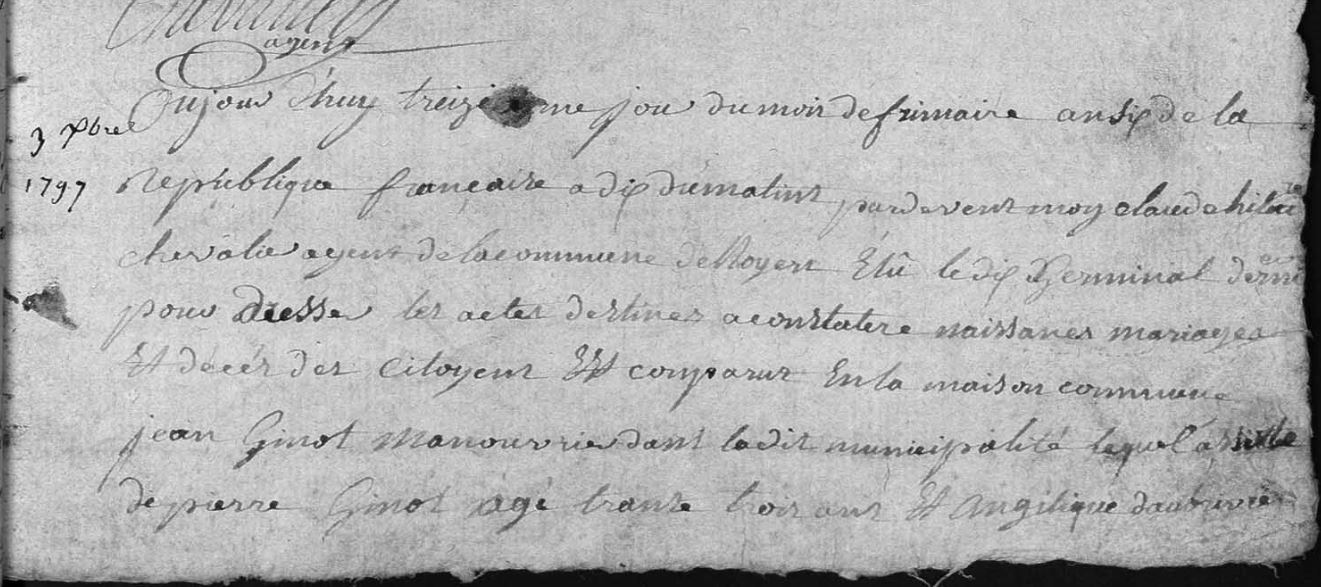 agent
Aujour d'huy treizieme jou du mois de frimaire an six de la
3 xbre
1797
Republique francaise a dix du matins par devent moy claude hilaire
chevalie agent de la commune de Royere Elû le dix Germinal dernie
pour dresse les actes destines a constatere naissances mariages
Et décés des Citoyens Est comparus En la maison commune
jean Ginot Manouvrie dans ladit municipalité lequel assiste
de pierre Ginot agé trante trois ans Et Angélique